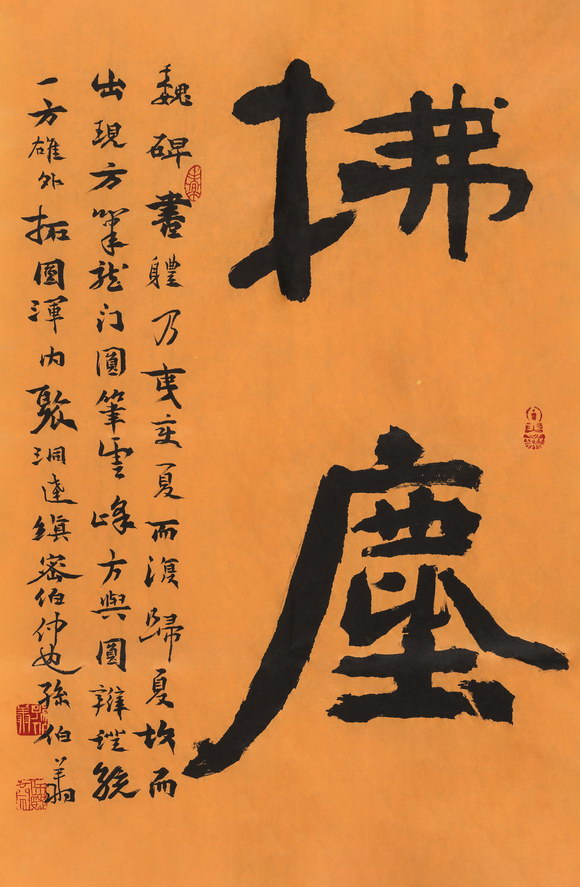 拂塵
魏碑書體乃史變夏而復歸夏故而
出現方筆龍门圓筆雲峰方與圓辯證統
一方雄外拓圆渾内聚洞達縝密伯仲也孫伯翔